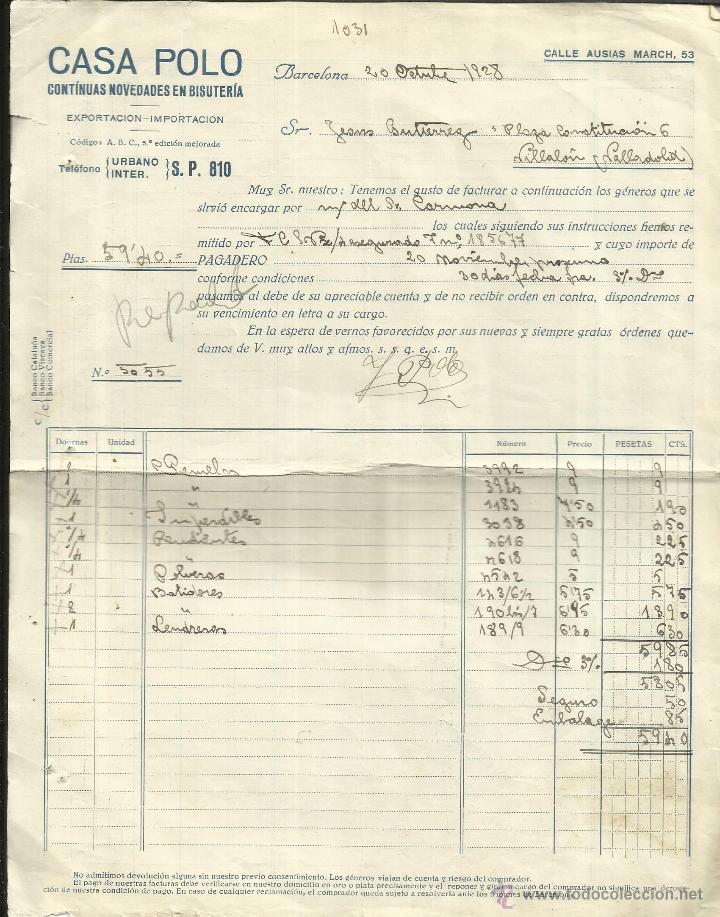 1031
CASA POLO
CONTÍNUAS NOVEDADES EN BISUTERÍA
EXPORTACION—IMPORTACION
Códigos A. B. C., 5.ª edición mejorada
Teléfono { URBANO INTER. } S. P. 810
CALLE AUSIAS MARCH, 53
Barcelona 20 Octubre 1928
Sr. Jesus Gutierrez Plaza Constitución 6
Villalón (Valladolid)
Muy Sr. nuestro: Tenemos el gusto de facturar a continuación los géneros que se
sirvió encargar por m/ del Sr. Carmona
los cuales siguiendo sus instrucciones hemos re-
mitido por asegurado nº 185677 y cuyo importe de
Ptas. 59'40.= PAGADERO 20 Noviembre proximo
conforme condiciones 30 días fecha fra. 3% Dto
pasamos al debe de su apreciable cuenta y de no recibir orden en contra, dispondremos a
su vencimiento en letra a su cargo.
En la espera de vernos favorecidos por sus nuevas y siempre gratas órdenes que-
damos de V. muy attos y afmos. s. s. q. e. s. m.
N.º 5055
c/c { Banco Cataluña
Banco Vizcaya
Banco Comercial
Docenas Unidad Número Precio PESETAS CTS.
3992 9 9
" 9 9
1/4 1183 7'50 190
1 Imperdibles 3038 4'50 450
1/4 Pendientes 4616 9 225
1/4 " 4618 9 225
1 Polveras 5 5
1 Batidores 5'75 575
2 " 6'95 1390
1 Lendreras 189/9 6'30 630
5985
Dto 3% 180
5805
Seguro 50
Embalage 85
5940
No admitimos devolución alguna sin nuestro previo consentimiento. Los géneros viajan de cuenta y riesgo del comprador.
El pago de nuestras facturas debe verificarse en nuestro domicilio en oro o plata precisamente y el reponer y giro a cargo del comprador no significa una deroga-
ción de nuestra condición de pago. En caso de cualquier reclamación, el comprador queda sujeto a resolverla ante los tribunales de Barcelona.
todocoleccion.net